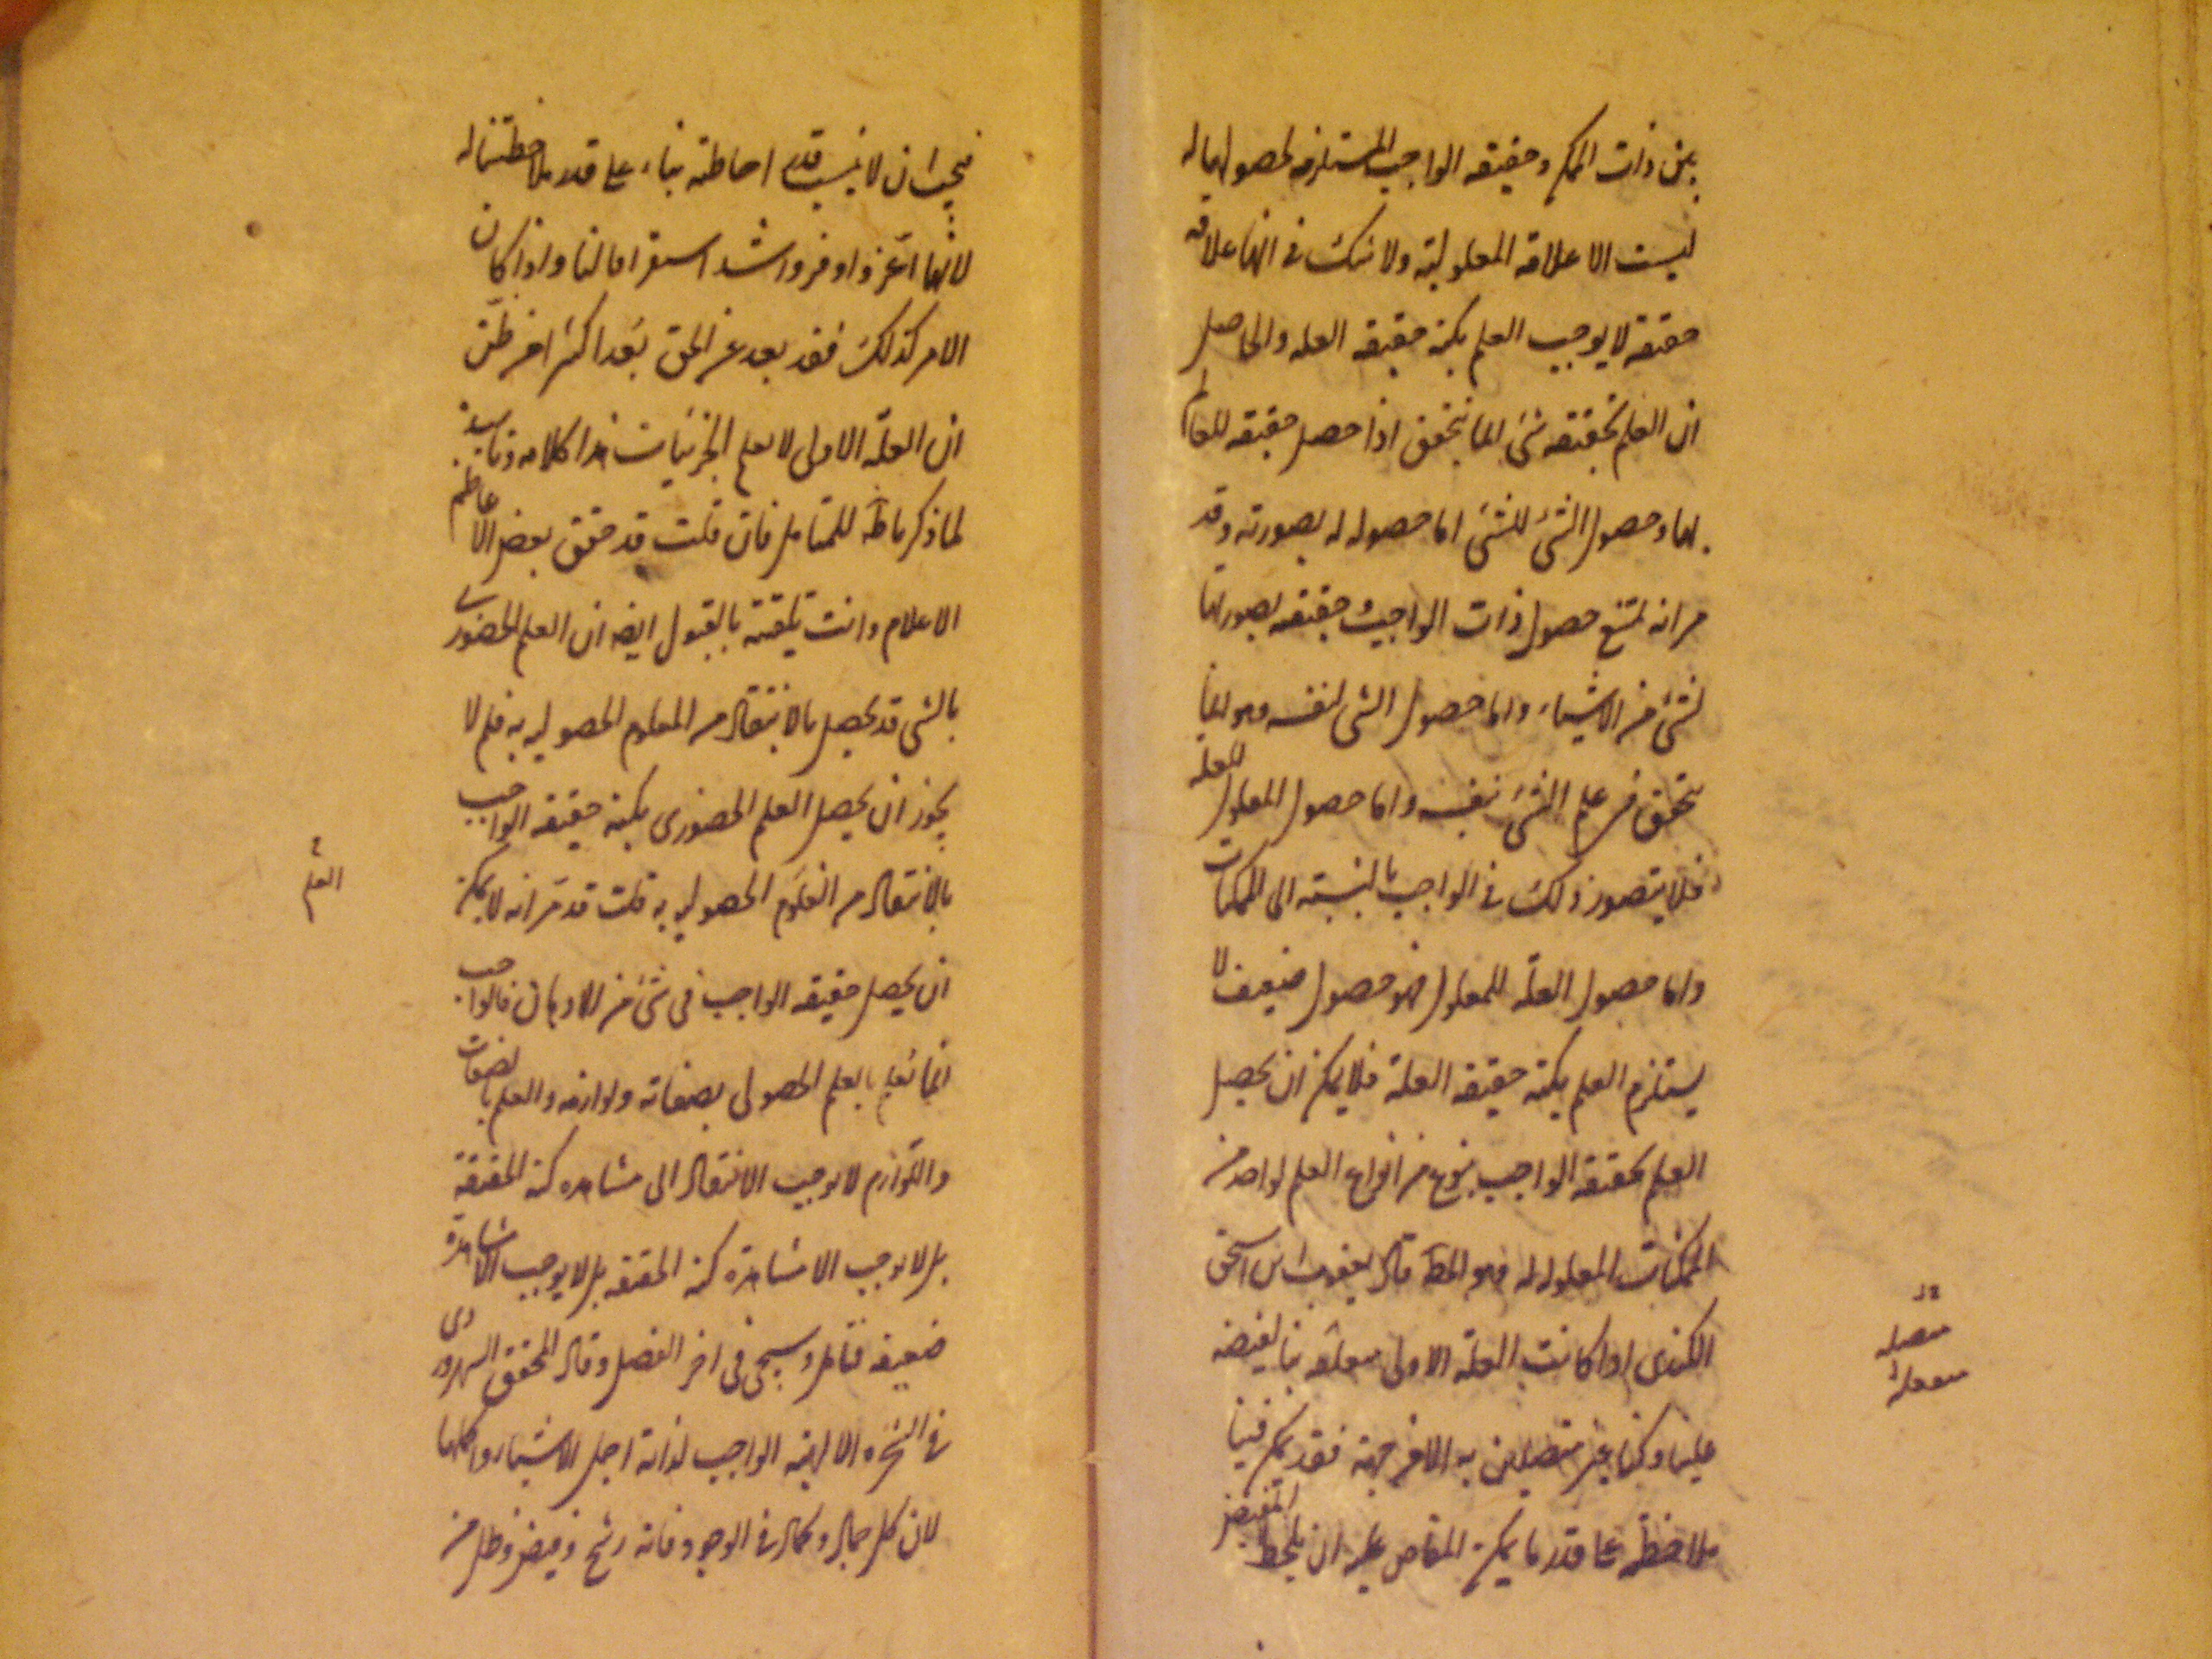 بين ذات الممكن وحقيقه الواجب المستلزمه لحصولها له
ليست الا علاقه المعلولية ولا شك فى انها علاقه
حقيقه لا يوجب العلم بكنه حقيقه العله والحاصل
ان العلم بحقيقه شئ انما يتحقق اذا حصل حقيقه للعالم
بها وحصول الشئ للشئ اما حصوله له بصورته وقد
مر انه يمتنع حصول ذات الواجب وحقيقه بصورتها
لشئ من الاشياء واما حصول الشى لنفسه وهو انما
يتحقق فى علم الشئ بنفسه واما حصول المعلول للعله
فلا يتصور ذلك فى الواجب بالنسبته الى الممكنات
واما حصول العلّه للمعلول فهو حصول ضعيف لا
يستلزم العلم بكنه حقيقه العلة فلا يمكن ان يحصل
العلم بحقيقة الواجب بنوع من انواع العلم لواحد من
الممكنات المعلوله له وهو المط قال يعقوب بن اسحق
الكندى اذا كانت العلة الاولى متصله بنا لفيضه
علينا وكنا غير متصلين به الا من جهة فقد يمكن فينا
ملاحظته على قدر ما يمكن المفاض عليه ان يلحظ المفيض
متصله
فيجب ان لا ينسب قدر احاطته بناء على قدر ملاحظتنا له
لانها اغزر واوفر واشد استغراقا لنا واذا كان
الامر كذلك فقد بعد عن الحق بعدا كثيرا من ظن
ان العلّة الاولى لا يعلم الجزئيات هذا كلامه وتاييده
لما ذكرنا ظ للمتامل فان قلت قد حقق بعض الاعاظم
الاعلام وانت تلقيته بالقبول ايضا ان العلم الحضورى
بالشى قد يحصل بالانتقال من المعلوم الحصولى به فلم لا
يجوز ان يحصل العلم الحضورى بكنه حقيقه الواجب
بالانتقال من المعلوم الحصولى به قلت قد مر انه لا يمكن
العلم
ان يحصل حقيقه الواجب فى شئ من الاذهان فالواجب
انما يعلم بالعلم الحصولى بصفاته ولوازمه والعلم بالصفات
واللوازم لا يوجب الانتقال الى مشاهده كنه الحقيقة
بل لا يوجب الا مشاهدة كنه الحقيقه بل لا يوجب الا مشاهدة
ضعيفه فتامل وسيجئ فى اخر الفصل وقال المحقق السهروردى
فى الشجره الالهيه الواجب لذاته اجل الاشياء واكملها
لان كل جمال وكمال فى الوجود فانه رشح وفيض وظل من